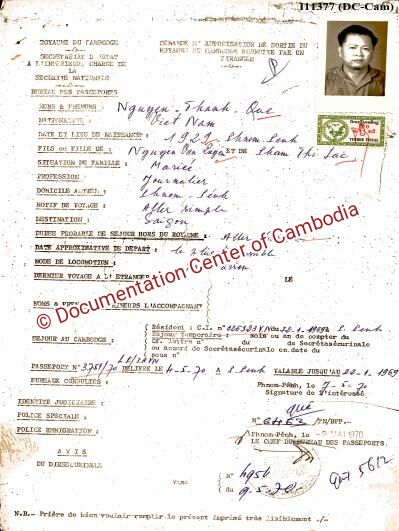 111377 (DC-Cam)
ROYAUME DU CAMBODGE
SECRETARIAT D'ETAT
A L'INTERIEUR, CHARGE DE
LA
SECURITE NATIONALE
BUREAU DES PASSEPORTS
DEMANDE D'AUTORISATION DE SORTIE DU
ROYAUME DU CAMBODGE FORMULEE PAR UN
ETRANGER
NOMS & PRENOMS : Nguyen-Thanh-Que
NATIONALITE : Viet Nam
DATE ET LIEU DE NAISSANCE : 1924 Phnom-Penh
FILS ou FILLE DE : Nguyen Van ET DE Pham Thi Lac
SITUATION DE FAMILLE : Marié
PROFESSION : Journalier
DOMICILE ACTUEL : Phnom-Pénh
MOTIF DE VOYAGE : Aller simple
DESTINATION : Saigon
DUREE PROBABLE DE SEJOUR HORS DU ROYAUME : Aller
DATE APPROXIMATIVE DE DEPART : le plus
MODE DE LOCOMOTION : avion
DERNIER VOYAGE A L'ETRANGER LE
© Documentation Center of Cambodia
NOMS & MINEURS L'ACCOMPAGNANT
SEJOUR AU CAMBODGE :
Résident : C.I. n° du 22-1-1969 à
Séjour temporaire : Nom ou an de compter du
Cf. lettre n° du de Secrétasécurinale
ou accord de Secrétasécurinale en date du
sous n°
PASSEPORT N° 3751/70 DELIVRE LE 4-5-70 A VALABLE JUSQU'AU 22-1-1969
BUREAUX CONSULTES :
Phnom-Penh, 7-5-70
Signature de l'intéressé.
Qué
IDENTITE JUDICIAIRE :
POLICE SPECIALE :
POLICE IMMIGRATION :
N° 6463 /BPP.-
Phnom-Penh, le MAI 1970
LE CHEF DU BUREAU DES PASSEPORTS.
AVIS
DU DIRSECURINALE
VISA
N°
du 9-5-70
5612
N.B.- Prière de bien vouloir remplir le présent imprimé très lisiblement ./-